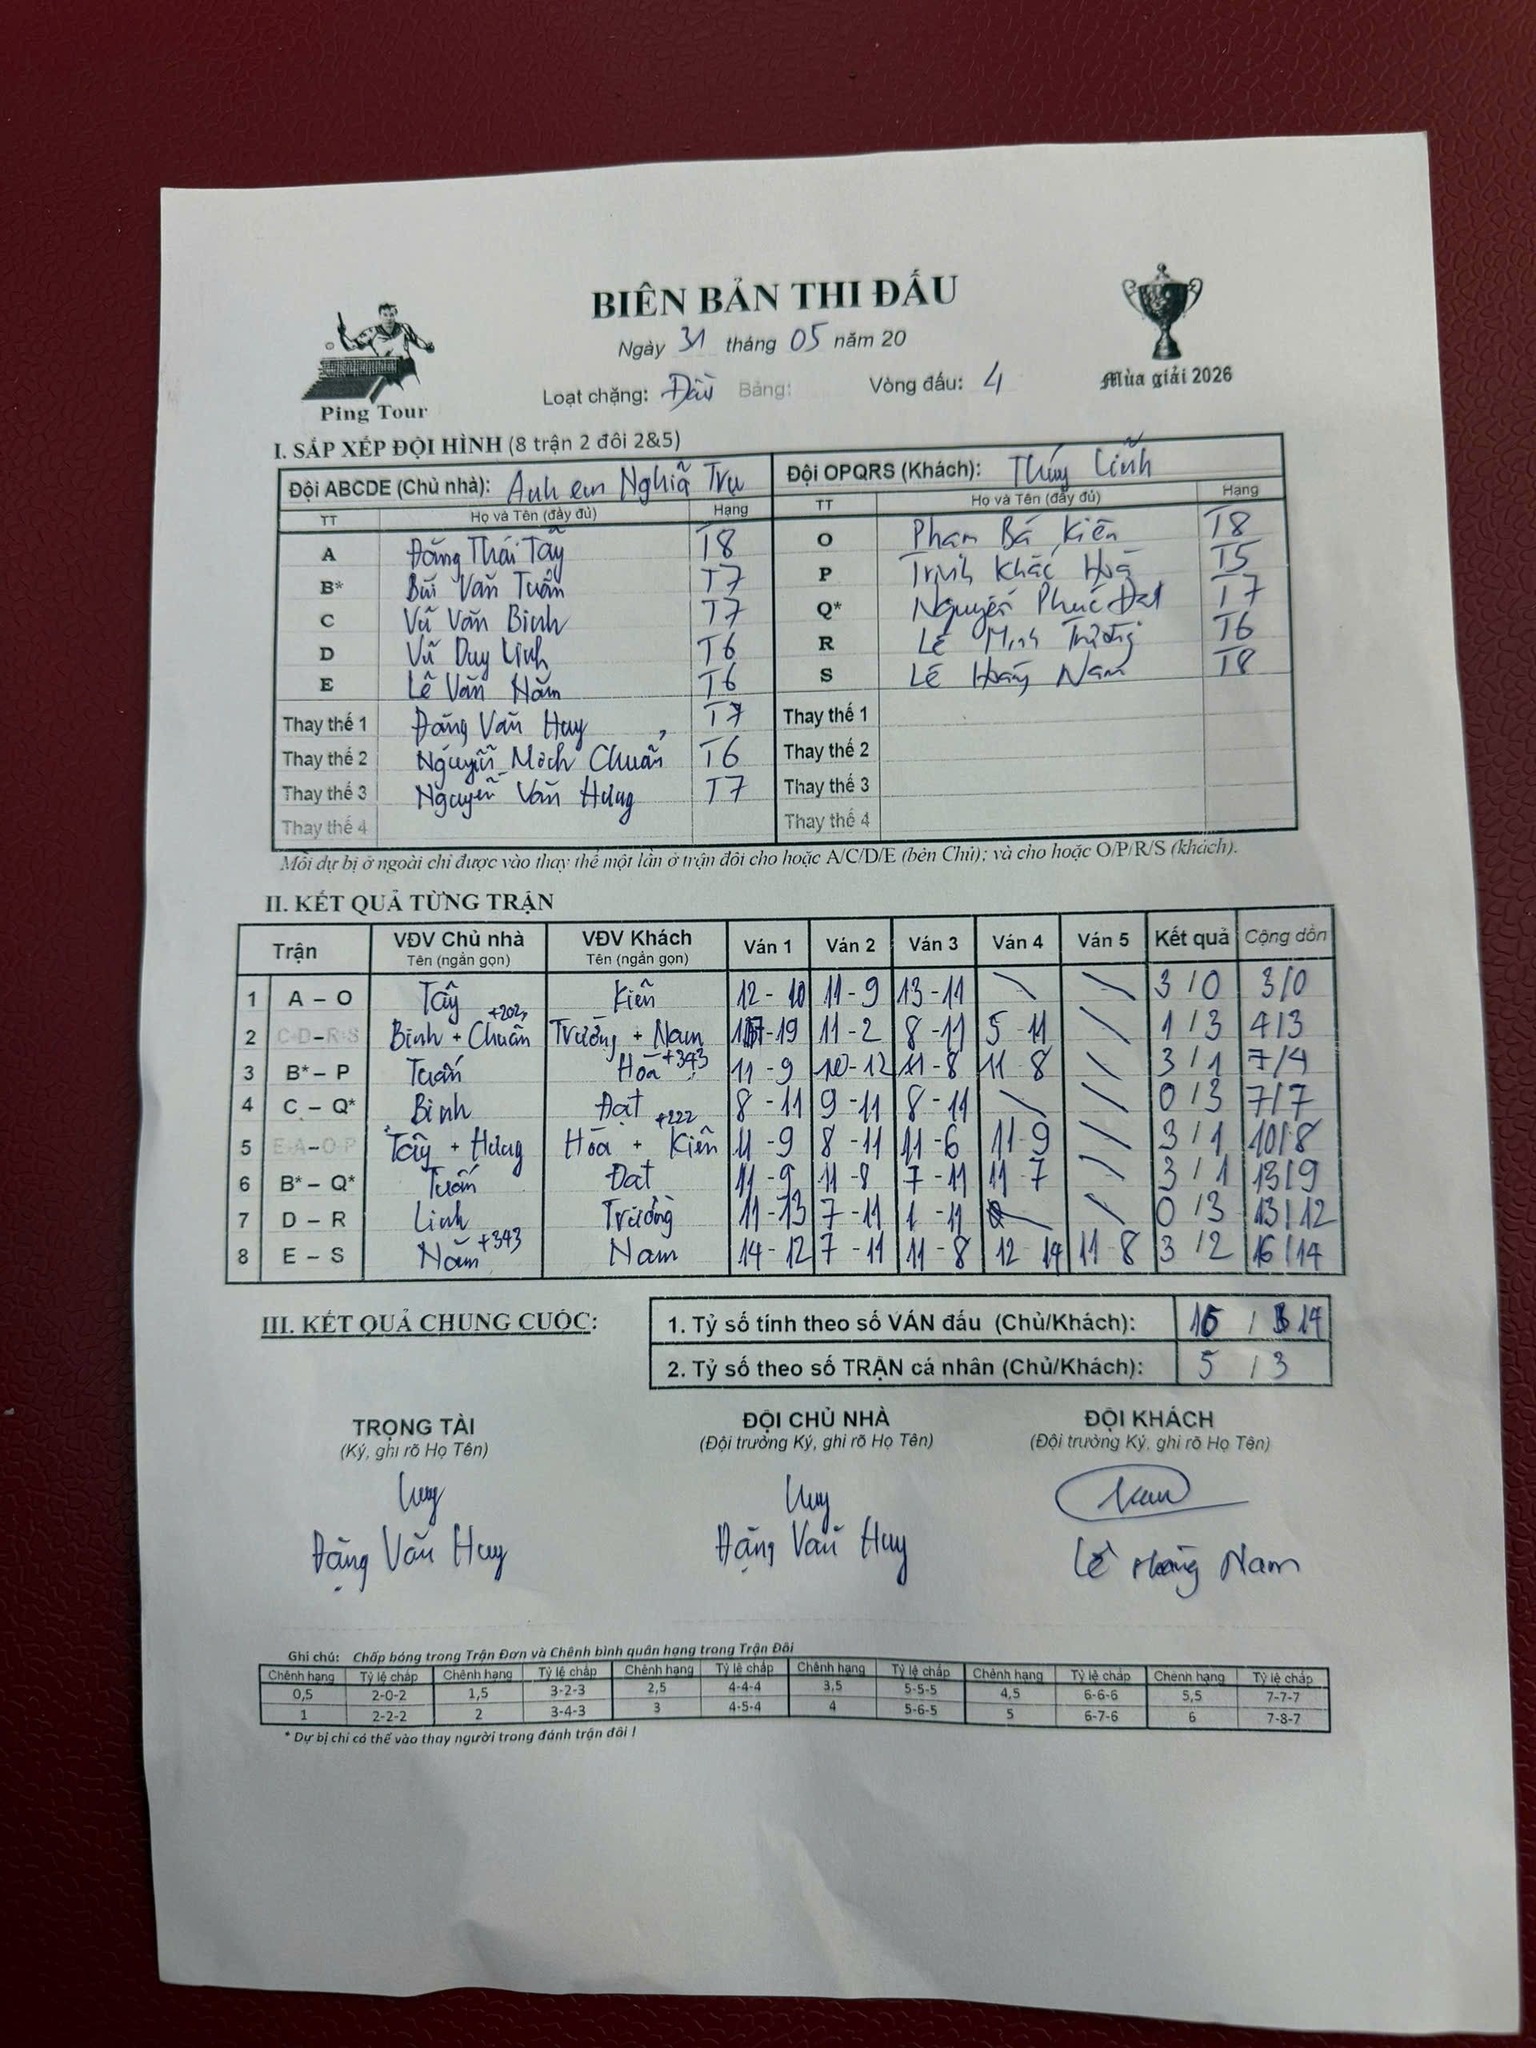 BIÊN BẢN THI ĐẤU
Ngày 31 tháng 05 năm 20
Loạt chặng: Đầu Bảng: Vòng đấu: 4
Ping Tour
Mùa giải 2026
I. SẮP XẾP ĐỘI HÌNH (8 trận 2 đôi 2&5)
Đội ABCDE (Chủ nhà): Anh em Nghĩa Trụ Đội OPQRS (Khách): Thúy Lĩnh
TT Họ và Tên (đầy đủ) Hạng TT Họ và Tên (đầy đủ) Hạng
A Đặng Thái Tây T8 O Phạm Bá Kiên T8
B* Bùi Văn Tuấn T7 P Trịnh Khắc Hoà T5
C Vũ Văn Bình T7 Q* Nguyễn Phúc Đạt T7
D Vũ Duy Linh T6 R Lê Minh Trường T6
E Lê Văn Năm T6 S Lê Hoàng Nam T8
Thay thế 1 Đặng Văn Huy T7 Thay thế 1
Thay thế 2 Nguyễn Chuẩn T6 Thay thế 2
Thay thế 3 Nguyễn Văn Hưng T7 Thay thế 3
Thay thế 4 Thay thế 4
Mỗi dự bị ở ngoài chỉ được vào thay thế một lần ở trận đôi cho hoặc A/C/D/E (bên Chủ); và cho hoặc O/P/R/S (khách).
II. KẾT QUẢ TỪNG TRẬN
Trận VĐV Chủ nhà Tên (ngắn gọn) VĐV Khách Tên (ngắn gọn) Ván 1 Ván 2 Ván 3 Ván 4 Ván 5 Kết quả Cộng dồn
1 A – O Tây Kiên 12 - 10 11 - 9 13 - 11 3 / 0 3/0
2 C-D–R-S Bình + Chuẩn +202 Trường + Nam 17-19 11 - 2 8 - 11 5 - 11 1 / 3 4/3
3 B* – P Tuấn Hòa +343 11 - 9 10 - 12 11 - 8 11 - 8 3 / 1 7/4
4 C – Q* Bình Đạt 8 - 11 9 - 11 8 - 11 0 / 3 7/7
5 E-A–O-P Tây + Hưng Hòa + Kiên +222 11 - 9 8 - 11 11 - 6 11-9 3 / 1 10/8
6 B* – Q* Tuấn Đạt 11 - 9 11 - 8 7 - 11 11 - 7 3 / 1 13/9
7 D – R Linh Trường 11 - 13 7 - 11 1 - 11 0 / 3 13/12
8 E – S Năm +343 Nam 14 - 12 7 - 11 11 - 8 12 - 14 11 - 8 3 / 2 16/14
III. KẾT QUẢ CHUNG CUỘC:
1. Tỷ số tính theo số VÁN đấu (Chủ/Khách): 16 / 14
2. Tỷ số theo số TRẬN cá nhân (Chủ/Khách): 5 / 3
TRỌNG TÀI ĐỘI CHỦ NHÀ ĐỘI KHÁCH
(Ký, ghi rõ Họ Tên) (Đội trưởng Ký, ghi rõ Họ Tên) (Đội trưởng Ký, ghi rõ Họ Tên)
Huy Huy Nam
Đặng Văn Huy Đặng Văn Huy Lê Hoàng Nam
Ghi chú: Chấp bóng trong Trận Đơn và Chênh bình quân hạng trong Trận Đôi
Chênh hạng Tỷ lệ chấp Chênh hạng Tỷ lệ chấp Chênh hạng Tỷ lệ chấp Chênh hạng Tỷ lệ chấp Chênh hạng Tỷ lệ chấp Chênh hạng Tỷ lệ chấp
0,5 2-0-2 1,5 3-2-3 2,5 4-4-4 3,5 5-5-5 4,5 6-6-6 5,5 7-7-7
1 2-2-2 2 3-4-3 3 4-5-4 4 5-6-5 5 6-7-6 6 7-8-7
* Dự bị chỉ có thể vào thay người trong đánh trận đôi !